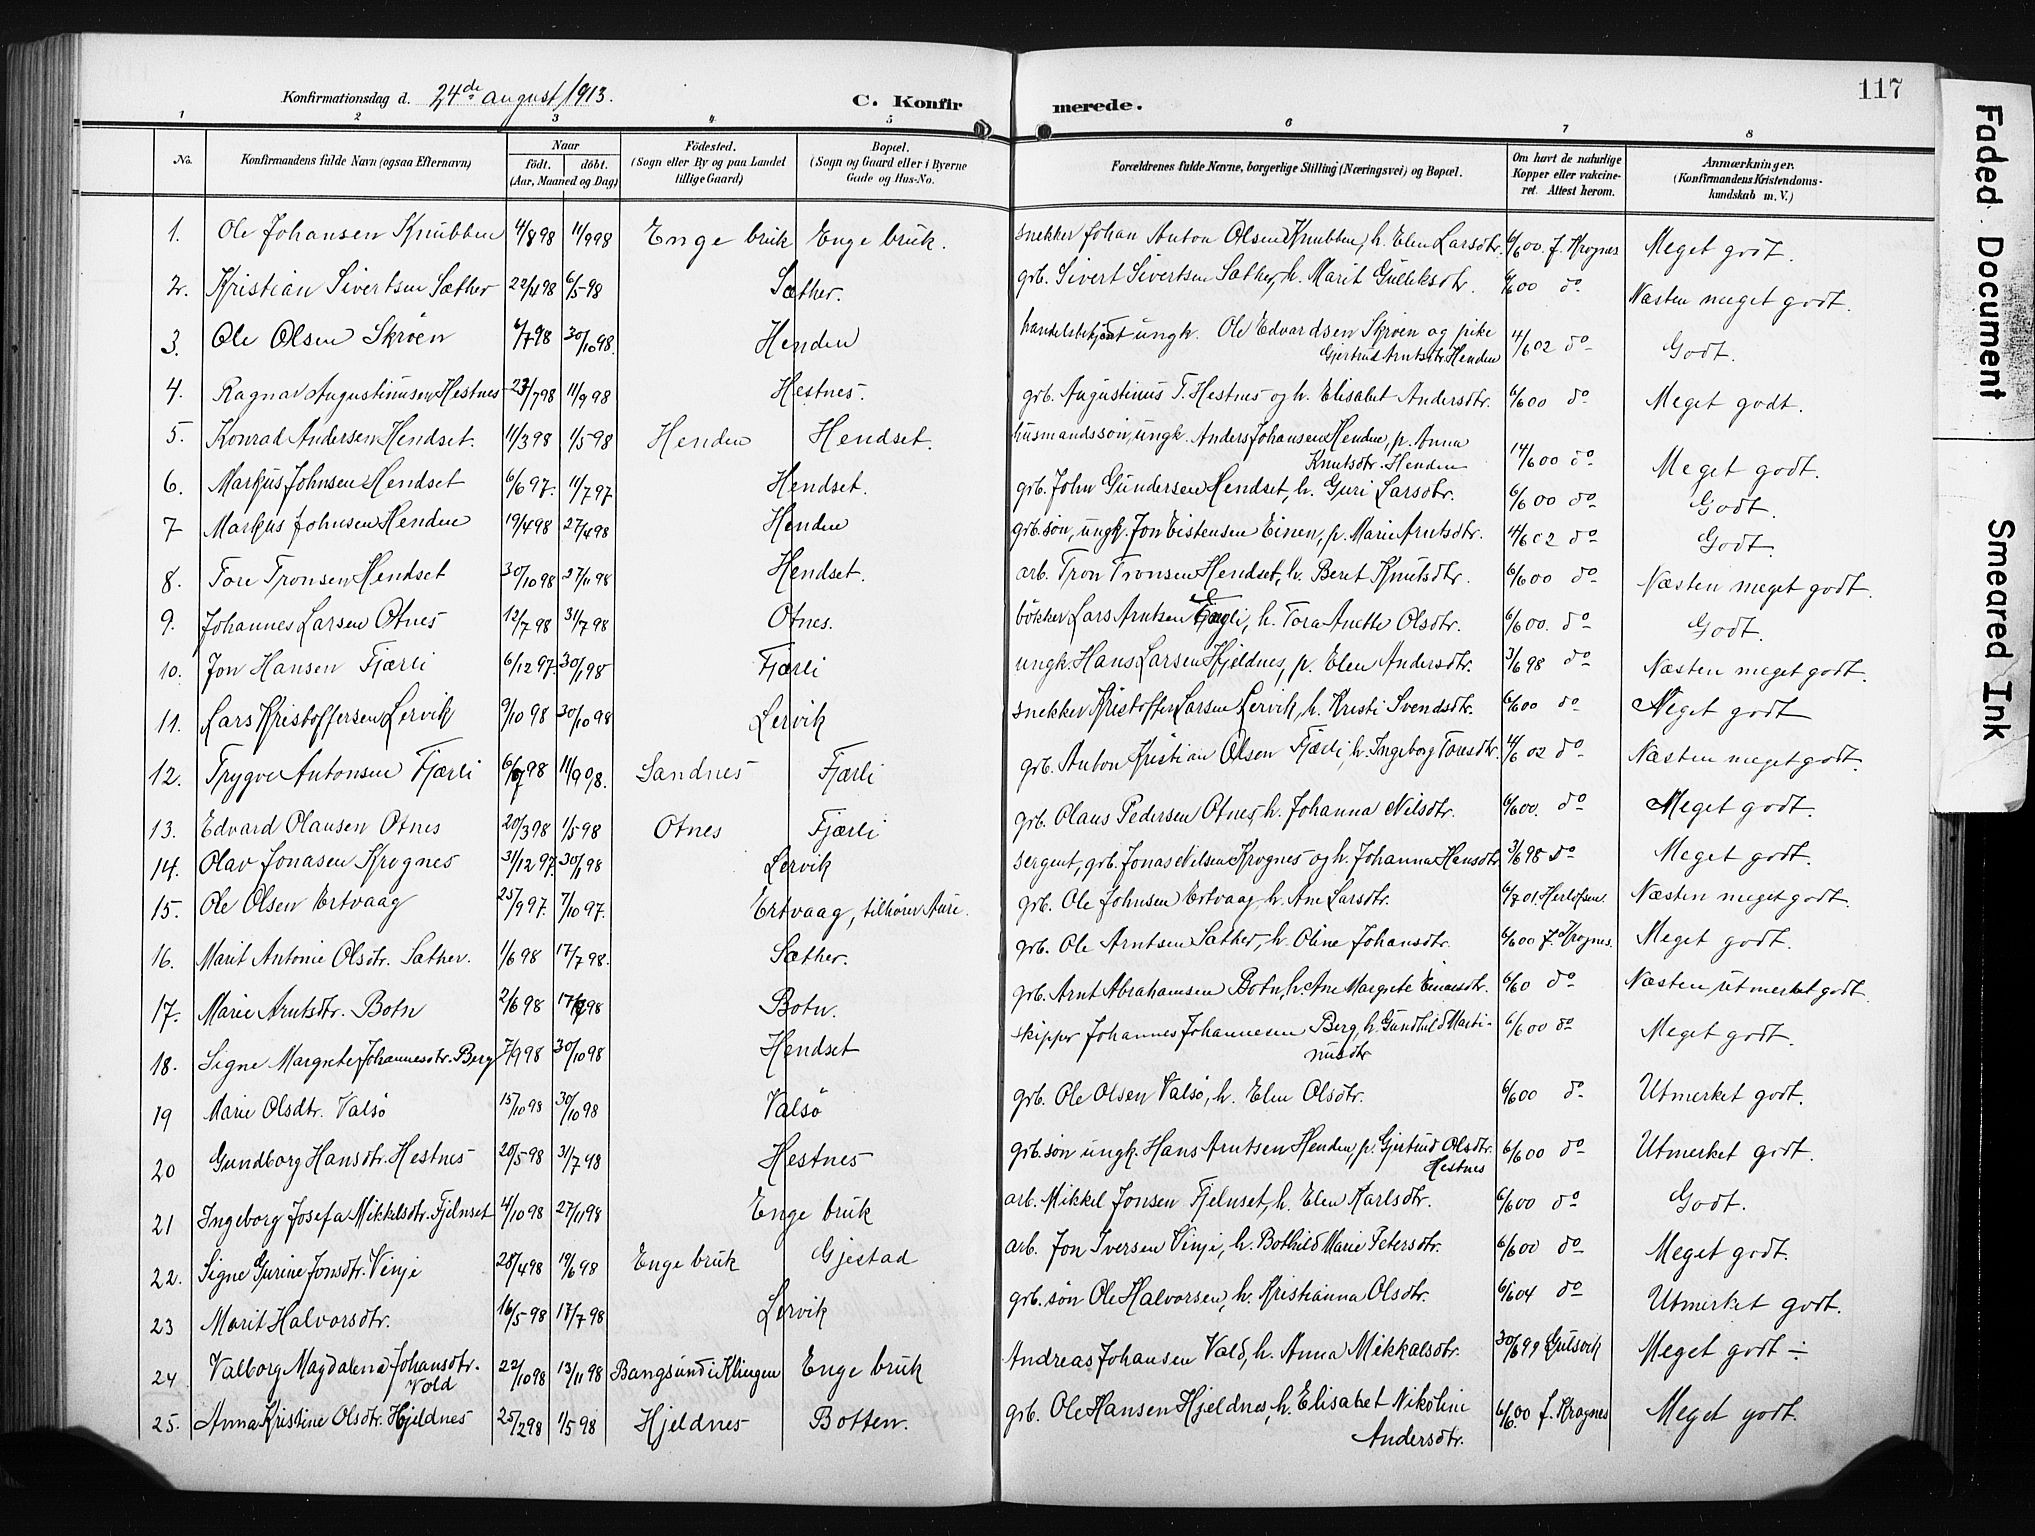 117
Konfirmationsdag d. 24de august 1913.
C. Konfirmerede.
1 2 3 4 5 6 7 8
No. Konfirmandens fulde Navn (ogsaa Efternavn) Naar født. døbt. (Aar, Maaned og Dag) Fødested. (Sogn eller By og paa Landet tillige Gaard) Bopæl. (Sogn og Gaard eller i Byerne Gade og Hus-No. Forældrenes fulde Navne, borgerlige Stilling (Næringsvei) og Bopæl. Om havt de naturlige Kopper eller vakcineret. Attest herom. Anmærkninger. (Konfirmandens Kristendomskundskab m. V.)
1. Ole Johansen Knubben 4/8 98 11/9 98 Enge bruk Enge bruk. snekker Johan Anton Olsen Knubben, h. Elen Larsdtr. 6/6 00 f. Krognes Meget godt.
2. Kristian Sivertsen Sæther 22/4 98 6/5 98 Sæther. grb. Sivert Sivertsen Sæther, h. Marit Gulliksdtr. 6/6 00 do Næsten meget godt.
3. Ole Olsen Skrøen 6/7 98 30/10 98. Henden handelsbetjent ungk. Ole Edvardsen Skrøen og pike
Gjertrud Arntsdtr. Henden 14/6 02 do Godt.
4. Ragnar Augustinusen Hestnes 23/7 98 11/9 98 Hestnes. grb. Augustinus T. Hestnes og h. Elisabet Andersdtr. 6/6 00 do Meget godt.
5. Konrad Andersen Hendset. 11/3 98 1/5 98 Henden Hendset. husmandssøn, ungk. Anders Johansen Henden, p. Anna
Knutsdtr. Henden 14/6 00 do Meget godt.
6. Markus Johnsen Hendset 6/6 97. 11/7 97 Hendset. grb. John Gundersen Hendset, h. Guri Larsdtr. 6/6 00 do Godt.
7 Markus Johnsen Henden 19/4 98 27/4 98 Henden grb. søn, ungk. Jon Eistensen Einen, p. Marie Arntsdtr. 14/6 02 do Godt.
8. Tore Tronsen Hendset 30/10 98 27/11 98 Hendset. arb. Tron Tronsen Hendset, h. Beret Knutsdtr. 6/6 00 do Næsten meget godt.
9. Johannes Larsen Otnes 12/7 98 31/7 98 Otnes. bøkker Lars Arntsen, h. Tora Anette Olsdtr. 6/6 00. do Godt.
10. Jon Hansen Fjærli 6/12 97. 30/1 98 Fjærli ungk. Hans Larsen Hjeldnes, p. Elen Andersdtr. 3/6 98 do Næsten meget godt.
11. Lars Kristoffersen Lervik 9/10 98 30/10 98 Lervik snekker Kristoffer Larsen Lervik, h. Kristi Svendsdtr. 6/6 00 do Meget godt
12. Trygve Antonsen Fjærli 6/7 98 11/9 98. Sandnes Fjærli grb. Anton Kristian Olsen Fjærli, h. Ingeborg Toresdtr. 14/6 02 do Næsten meget godt.
13. Edvard Olausen Otnes 20/3 98 1/5 98 Otnes Fjærli grb. Olaus Pedersen Otnes, h. Johanna Nilsdtr. 6/6 00. do Meget godt.
14. Olav Jonasen Krognes 31/12 97. 30/1 98 Lervik sergent, grb. Jonas Nilsen Krognes og h. Johanna Hansdtr 3/6 98 do Meget godt.
15. Ole Olsen Ertvaag 25/9 97. 7/10 97. Ertvaag, tilhører Aure. grb. Ole Johnsen Ertvaag, h. Ane Larsdtr. 6/7 01. Herlofsen. Næsten meget godt.
16. Marit Antonie Olsdtr. Sæther. 1/6 98 17/7 98. Sæther. grb. Ole Arntsen Sæther, h. Oline Johansdtr. 6/6 00 f. Krognes. Meget godt.
17. Marie Arntsdtr. Botn 2/6 98 17/7 98 Botn. grb. Arnt Abrahamsen Botn, h. Ane Margrete Einarsdtr. 6/6 0 do Næsten utmerket godt.
18. Signe Margrete Johannesdtr. Berg 7/9 98 30/10 98 Hendset skipper Johannes Johannesen Berg, h. Gundhild Marti-
nusdtr 6/6 00 do Meget godt.
19 Marie Olsdtr. Valsø 15/10 98 30/10 98 Valsø grb. Ole Olsen Valsø, h. Elen Olsdtr. 6/6 00 do Utmerket godt.
20 Gundborg Hansdtr. Hestnes 20/5 98 31/7 98 Hestnes grb. søn ungk. Hans Arntsen Henden, p. Gjertrud Olsdtr.
Hestnes 6/6 00 do Utmerket godt.
21 Ingeborg Josefa Mikkelsdtr. Fjelnset 4/10 98 27/11 98 Enge bruk arb. Mikkel Jonsen Fjelnset, h. Elen Karlsdtr. 6/6 00 do Godt.
22. Signe Gurine Jonsdtr. Vinje 28/4 98 19/6 98 Enge bruk Gjestad arb. Jon Iversen Vinje, h. Bothild Marie Petersdtr. 6/6 00 do Meget godt.
23 Marit Halvorsdtr. 16/5 98 17/7 98 Lervik grb. søn Ole Halvorsen, h. Kristianna Olsdtr. 6/6 04 do Utmerket godt.
24 Valborg Magdalena Johansdtr.
Vold 22/10 98 13/11 98 Bangsund i Klingen Enge bruk Andreas Johansen Vald, h. Anna Mikkalsdtr. 30/6 99 Gulsvik Meget godt ÷
25. Anna Kristine Olsdtr. Hjeldnes 25/2 98 1/5 98 Hjeldnes Botten. grb. Ole Hansen Hjeldnes, h. Elisabet Nikoline
Andersdtr. 6/6 00 f. Krognes Meget godt.
Faded Document
Smeared Ink